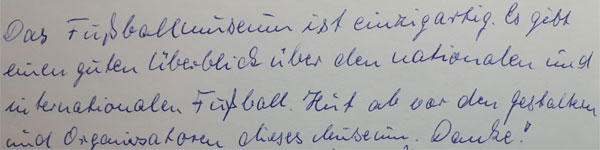 Das Fußballmuseum ist einzigartig. Es gibt
einen guten Überblick über den nationalen und
internationalen Fußball. Hut ab vor den gestaltern
und Organisatoren dieses Museum. Danke!"